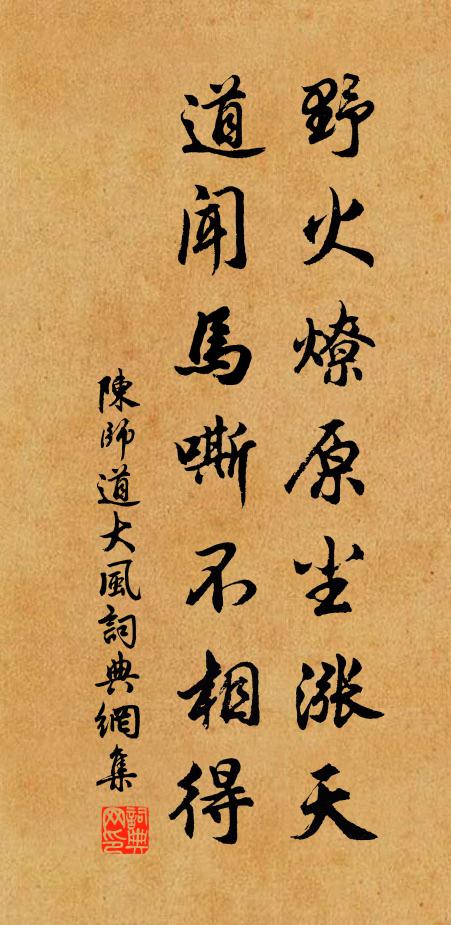 野火燎原尘涨天
道闻馬嘶不相得
陳師道大風詞典網集
詞典网印